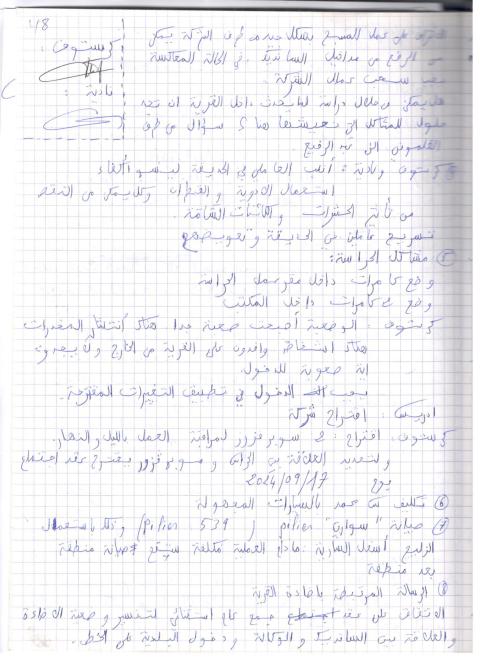 48
التعرف على عمل المسبح بشكل جيد من طرف الشركة يمكن
كريستوف:
من الرفع من مداخيل السانديك. في الحالة المعاكسة
يجب سحب عمال الشركة
نادية:
هل يمكن من خلال دراسة لما يحدث داخل القرية ان نجد
حلول للمشاكل التي نعيشها هنا؟ سؤال من طرف
كريستوف ونادية: أغلب العاملين في الحديقة ليسو أكفاء
استعمال الادوية و وكل يمكن من
من تأثير الحشرات والكائنات السامة.
تسريح عاملين من الحديقة وتعويضهم
⑤ مشاكل الحراسة:
وضع كامرات داخل مقر عمل الحراسة
وضع كامرات داخل المكتب
كريستوف: الوضعية أصبحت صعبة جدا هناك انتشار المخدرات
هناك اشخاص وافدون على القرية من الخارج ولا يجدون
اية صعوبة للدخول.
يجب الدخول في تطبيق التغييرات المقترحة.
ادريس: اقتراح شركة
كريستوف: اقتراح: 2 سوبرفيزور لمراقبة العمل بالليل والنهار.
ولتحديد العلاقة بين الحراس و سوبرفيزور يقترح عقد اجتماع
يوم 2024/09/17
⑥ تكليف محمد بالسيارات المهمولة
⑦ صيانة "سواري" pilier ( 539 pilier) وذلك باستعمال
الزليج أسفل السارية. مادام العملية مكلفة ستتم صيانة منطقة
بعد منطقة
⑧ الرسالة المرتبطة باضاءة القرية
الاتفاق على عقد جمع عام استثنائي لتفسير وضعية الاضاءة
والعلاقة بين السانديك والوكالة ودخول البلدية على الخط.